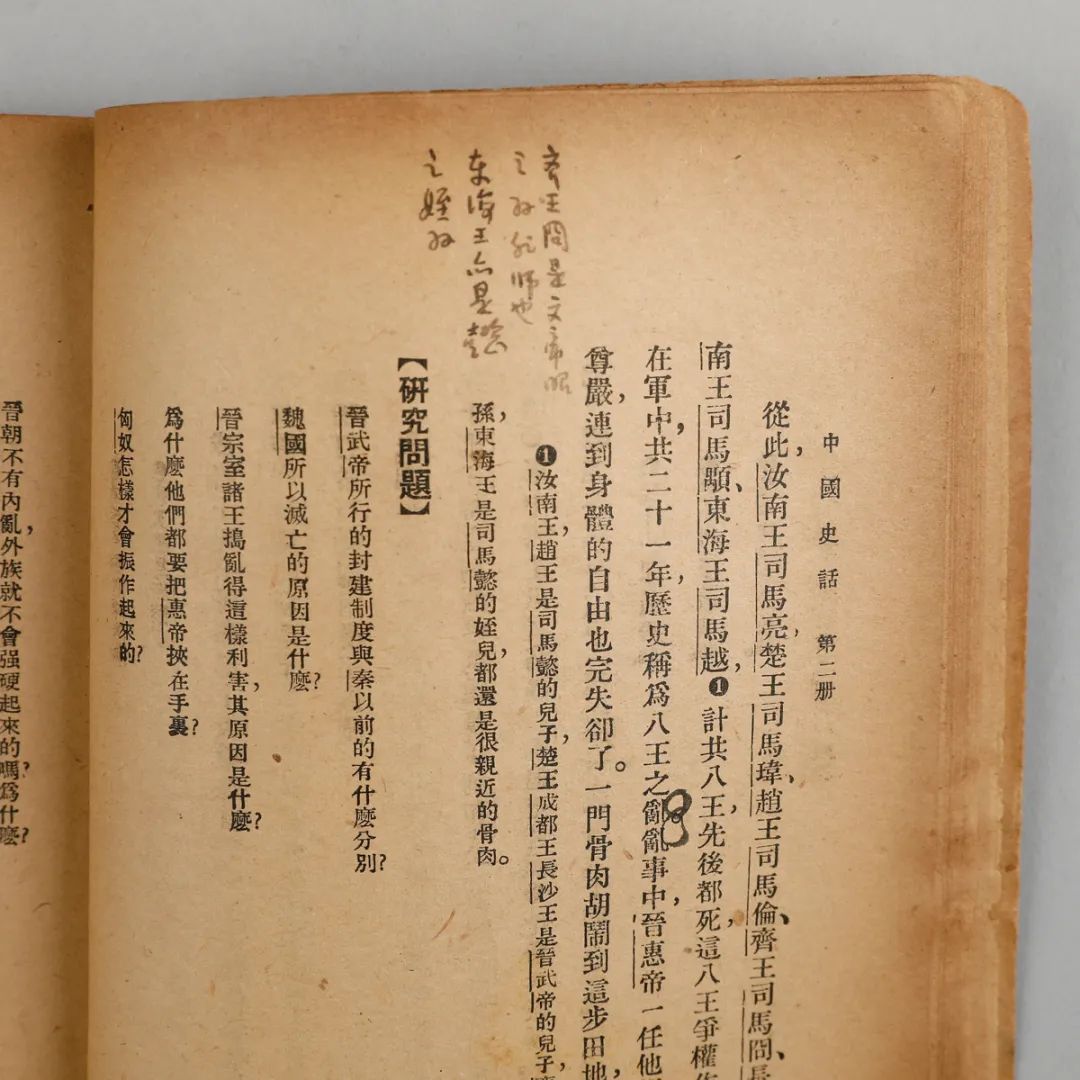 中國史話 第二册
從此，汝南王司馬亮，楚王司馬瑋、趙王司馬倫、齊王司馬冏、長
南王司馬顒、東海王司馬越，❶計共八王，先後都死這八王爭權作
在軍中，共二十一年，歷史稱爲八王之亂亂事中，晉惠帝一任他
尊嚴，連到身體的自由也完失卻了。一門骨肉胡鬧到這步田地，
❶汝南王，趙王是司馬懿的兒子，楚王成都王長沙王是晉武帝的兒子，
孫，東海王是司馬懿的姪兒，都還是很親近的骨肉。
【研究問題】
晉武帝所行的封建制度與秦以前的有什麼分別？
魏國所以滅亡的原因是什麼？
晉宗室諸王搗亂得這樣利害，其原因是什麼？
爲什麼他們都要把惠帝挾在手裏？
匈奴怎樣才會振作起來的？
齊王冏是文帝昭
之孫
也
東海王亦是懿
之姪孫
晉朝不有內亂，外族就不會强硬起來的嗎？爲什麼？